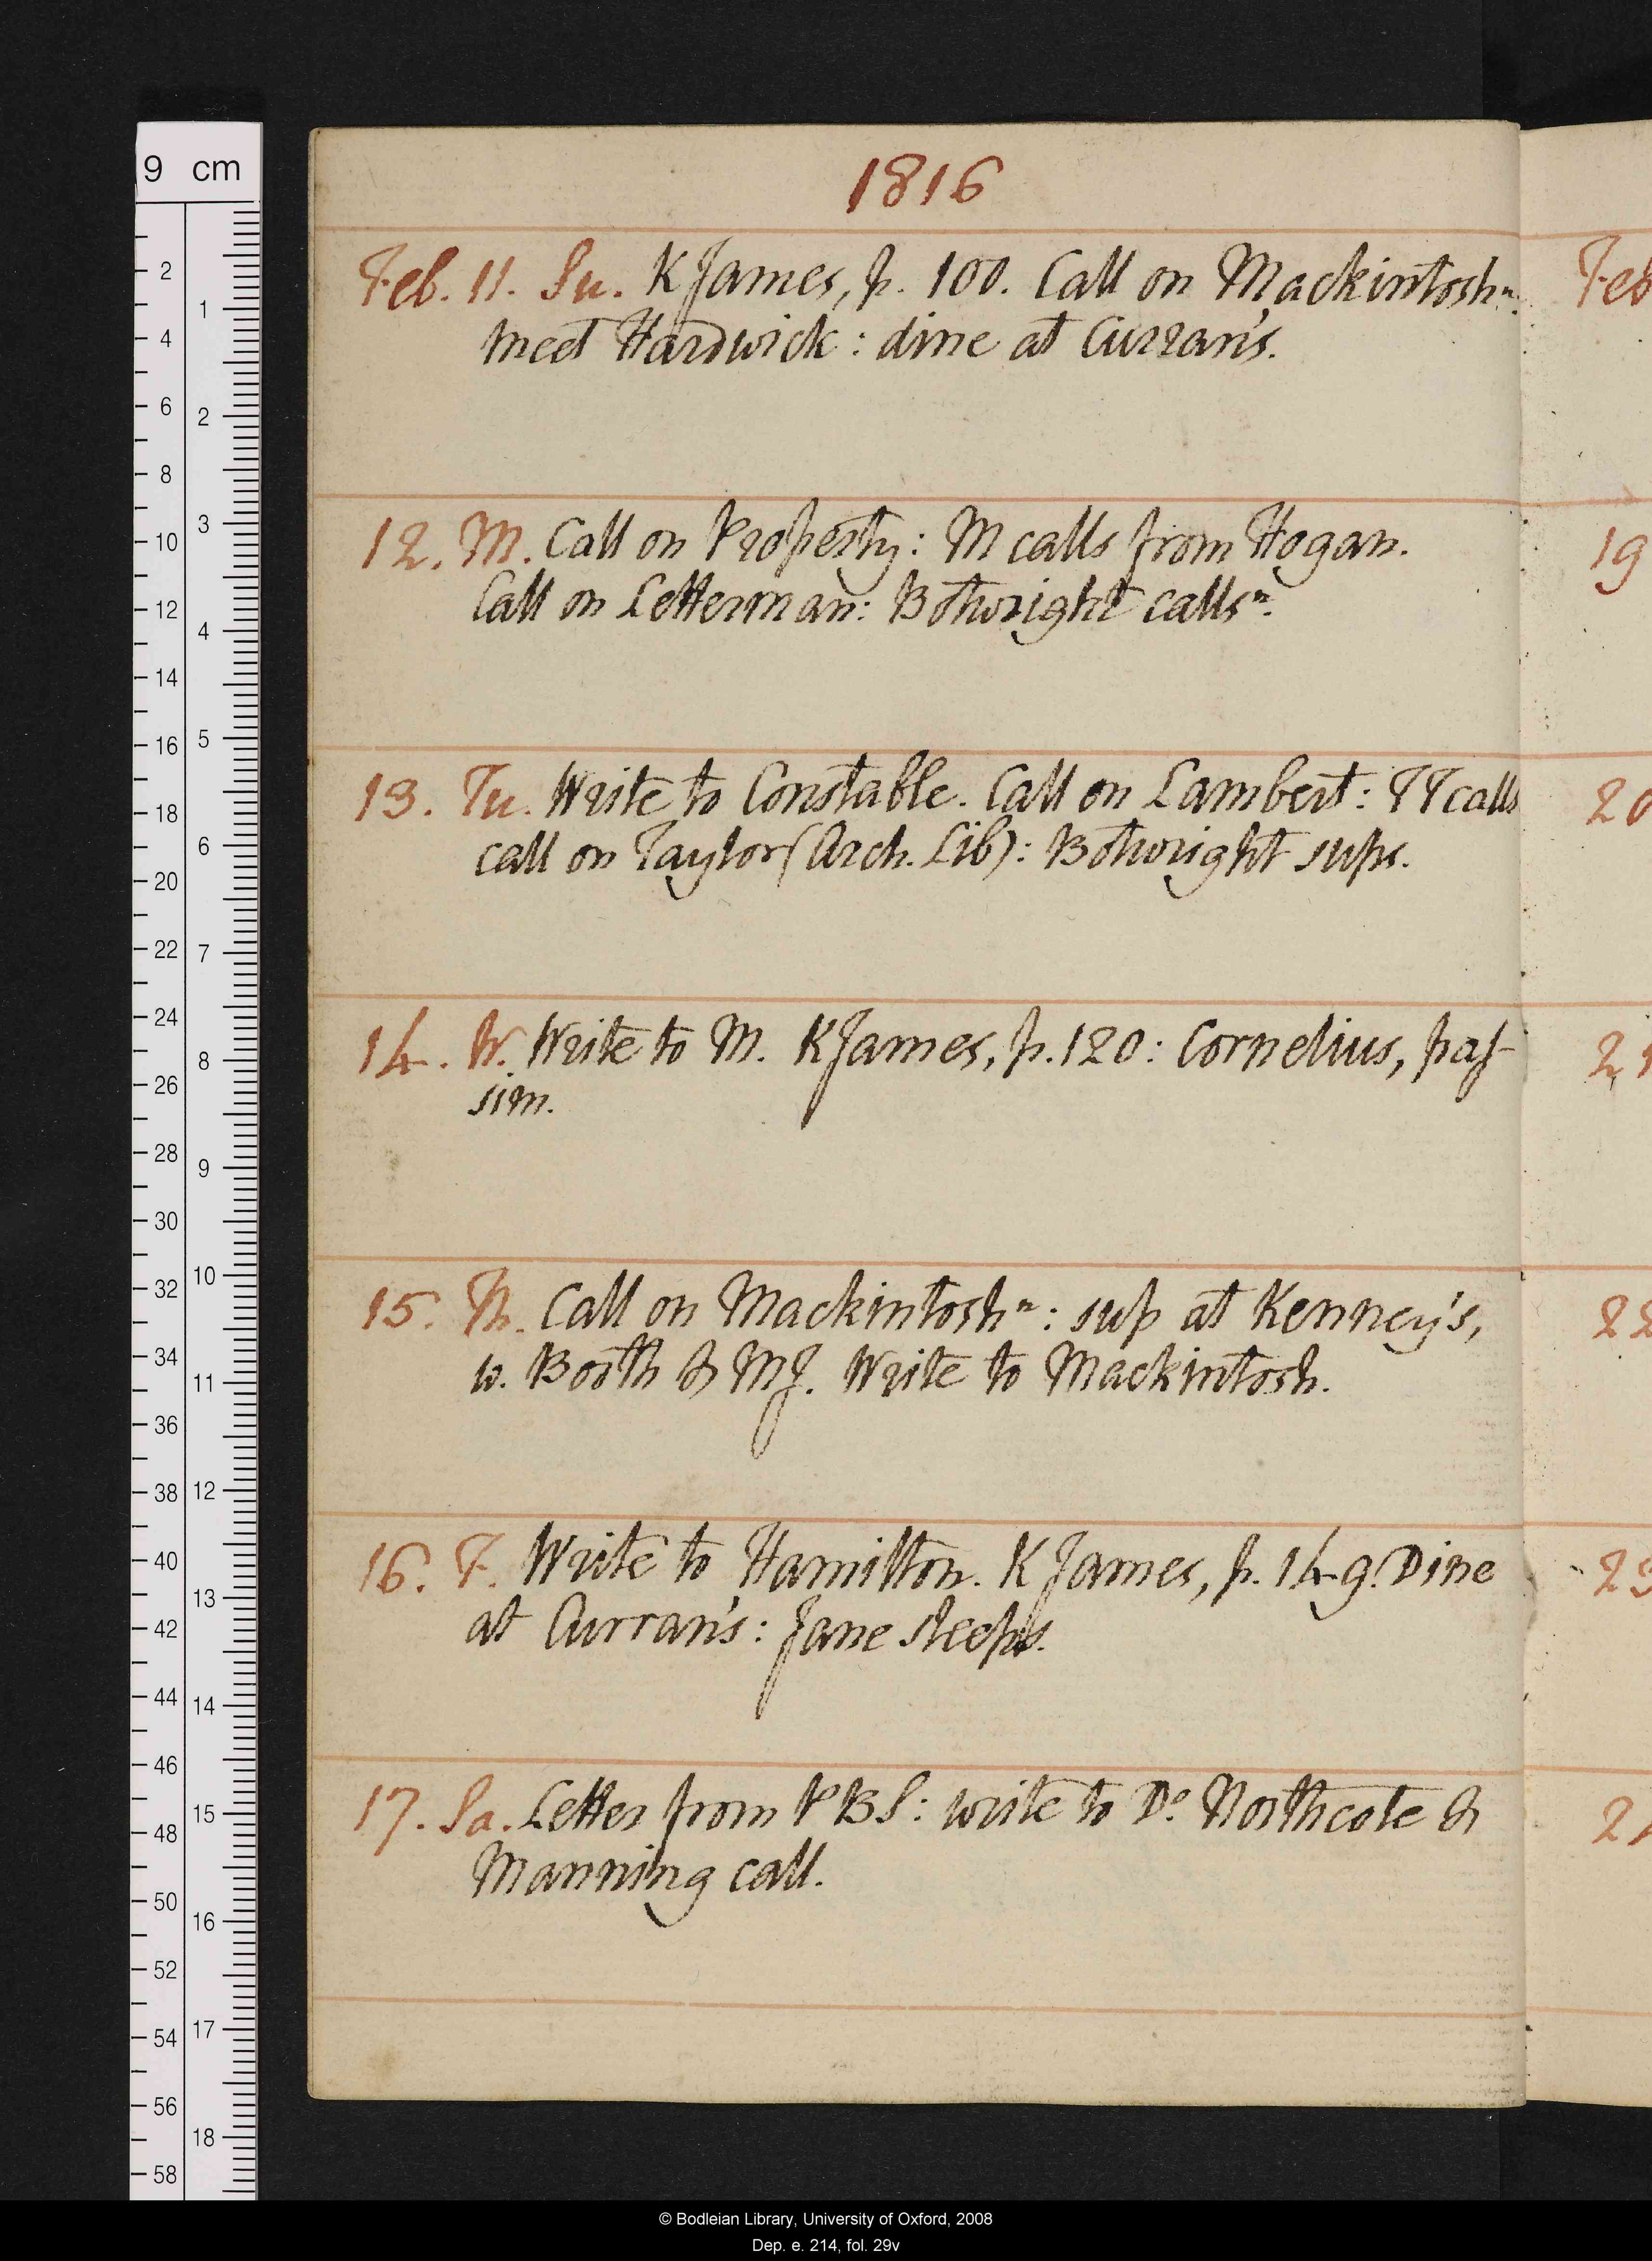 9 cm
1816
Feb. 11. Su. K James, p. 100. Call on Mackintosh n:
meet Hardwick: dine at Curran's.
12. M. Call on Property: M calls from Hogan.
Call on Letterman: Botwright calls n.
13. Tu. Write to Constable. Call on Lambert: TT calls
call on Taylor (Arch. Lib): Botwright sups.
14. W. Write to M. K James, p. 120: Cornelius, pas-
sim.
15. Th. Call on Mackintosh n: sup at Kenney's,
w. Booth & MJ. Write to Mackintosh.
16. F. Write to Hamilton. K James, p. 149. Dine
at Curran's: Jane sleeps.
17. Sa. Letter from PBS: write to Do. Northcote &
Manning call.
Feb
19
20
21
22
23
2
2
4
6
8
10
12
14
16
18
20
22
24
26
28
30
32
34
36
38
40
42
44
46
48
50
52
54
56
58
1
2
3
4
5
6
7
8
9
10
11
12
13
14
15
16
17
18
© Bodleian Library, University of Oxford, 2008
Dep. e. 214, fol. 29v